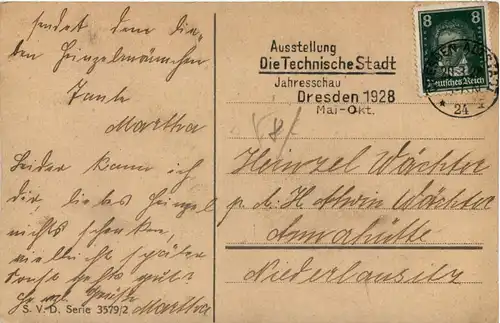 sendet dem lie-
ben Heinzelmännchen
Tante
Martha
Leider kann ich
Dir, liebes Heinzel
nichts schenken,
vielleicht später
Sonst geht's gut?
Grüße Martha
S. V. D. Serie 3579/2
Ausstellung
Die Technische Stadt
Jahresschau
Dresden 1928
Mai-Okt.
8 8
Deutsches Reich
* 24
Heinzel Wächter
p. d. H. Wächter
Annahütte
Niederlausitz